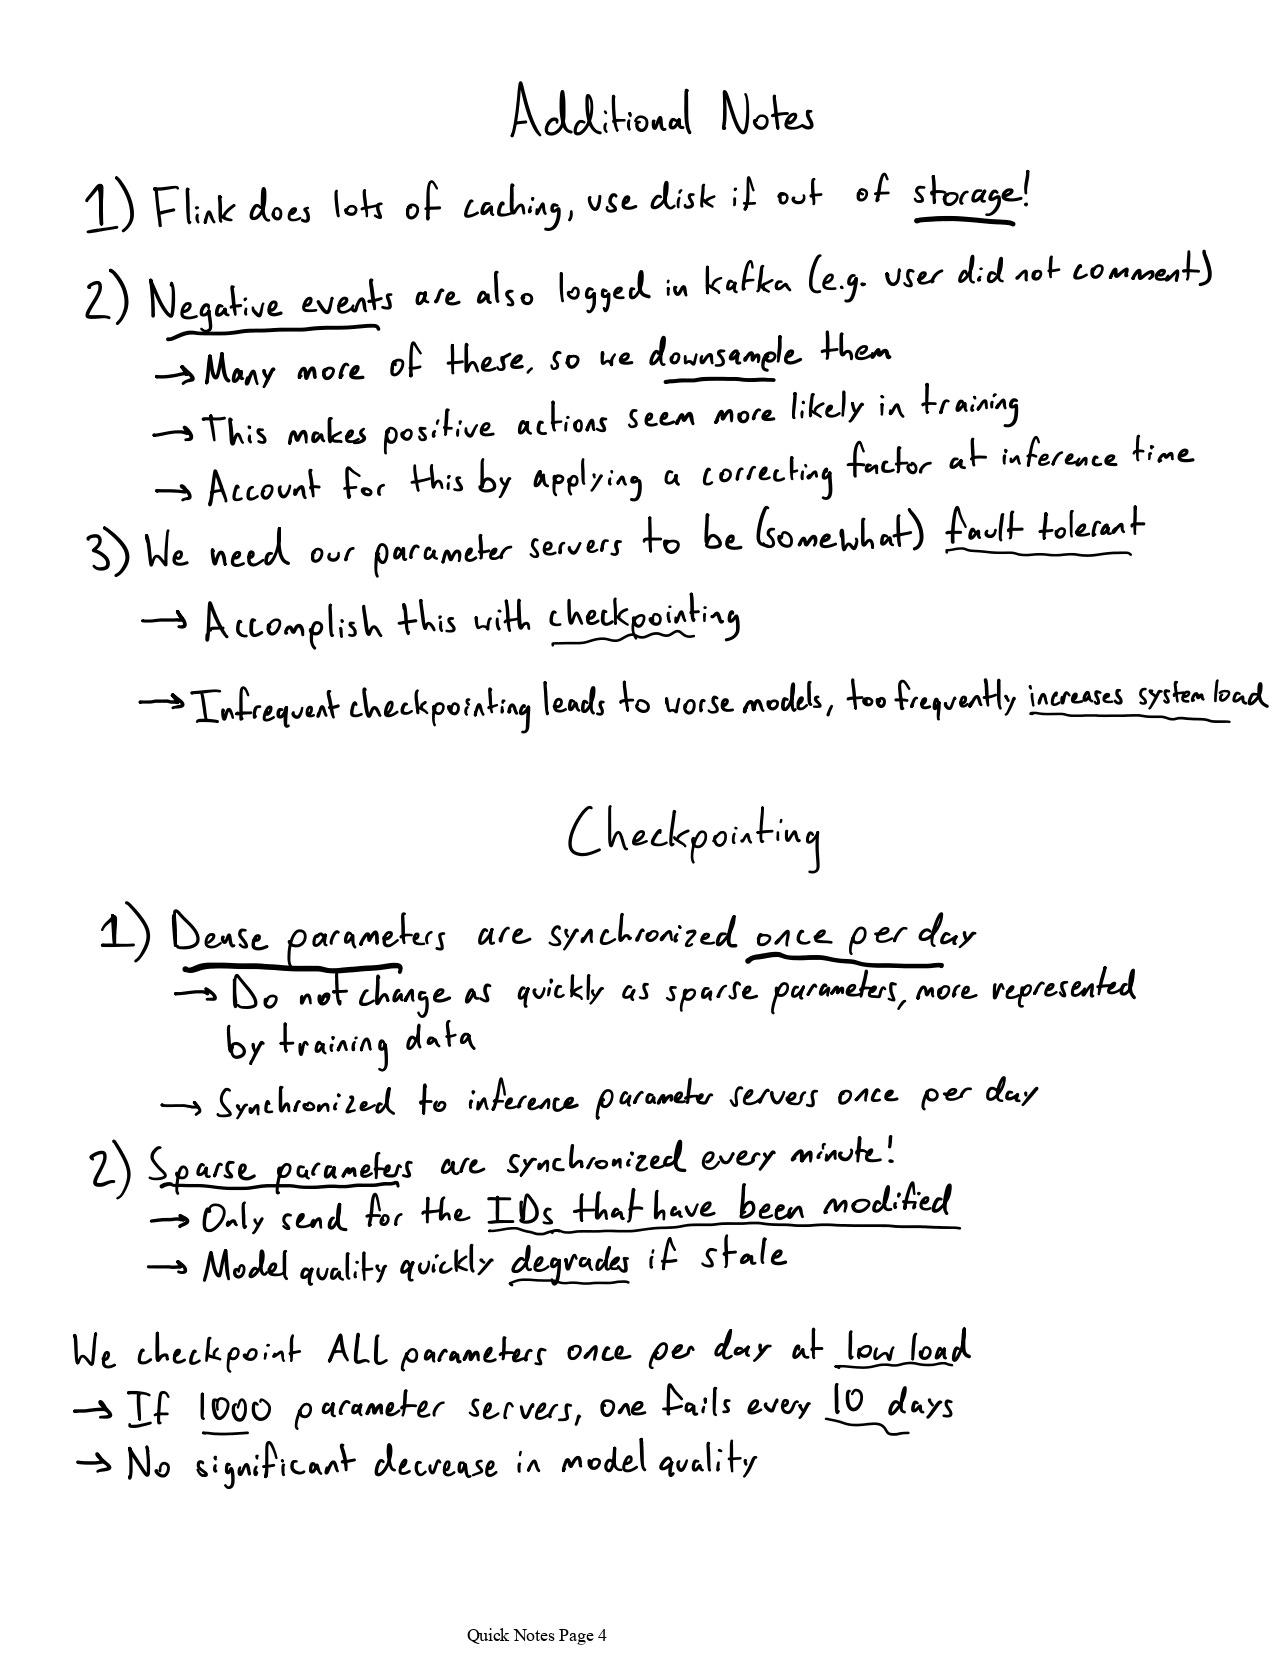 Additional Notes
1) Flink does lots of caching, use disk if out of storage!
2) Negative events are also logged in kafka (e.g. user did not comment)
→ Many more of these, so we downsample them
→ This makes positive actions seem more likely in training
→ Account for this by applying a correcting factor at inference time
3) We need our parameter servers to be (somewhat) fault tolerant
→ Accomplish this with checkpointing
→ Infrequent checkpointing leads to worse models, too frequently increases system load
Checkpointing
1) Dense parameters are synchronized once per day
→ Do not change as quickly as sparse parameters, more represented
by training data
→ Synchronized to inference parameter servers once per day
2) Sparse parameters are synchronized every minute!
→ Only send for the IDs that have been modified
→ Model quality quickly degrades if stale
We checkpoint ALL parameters once per day at low load
→ If 1000 parameter servers, one fails every 10 days
→ No significant decrease in model quality
Quick Notes Page 4